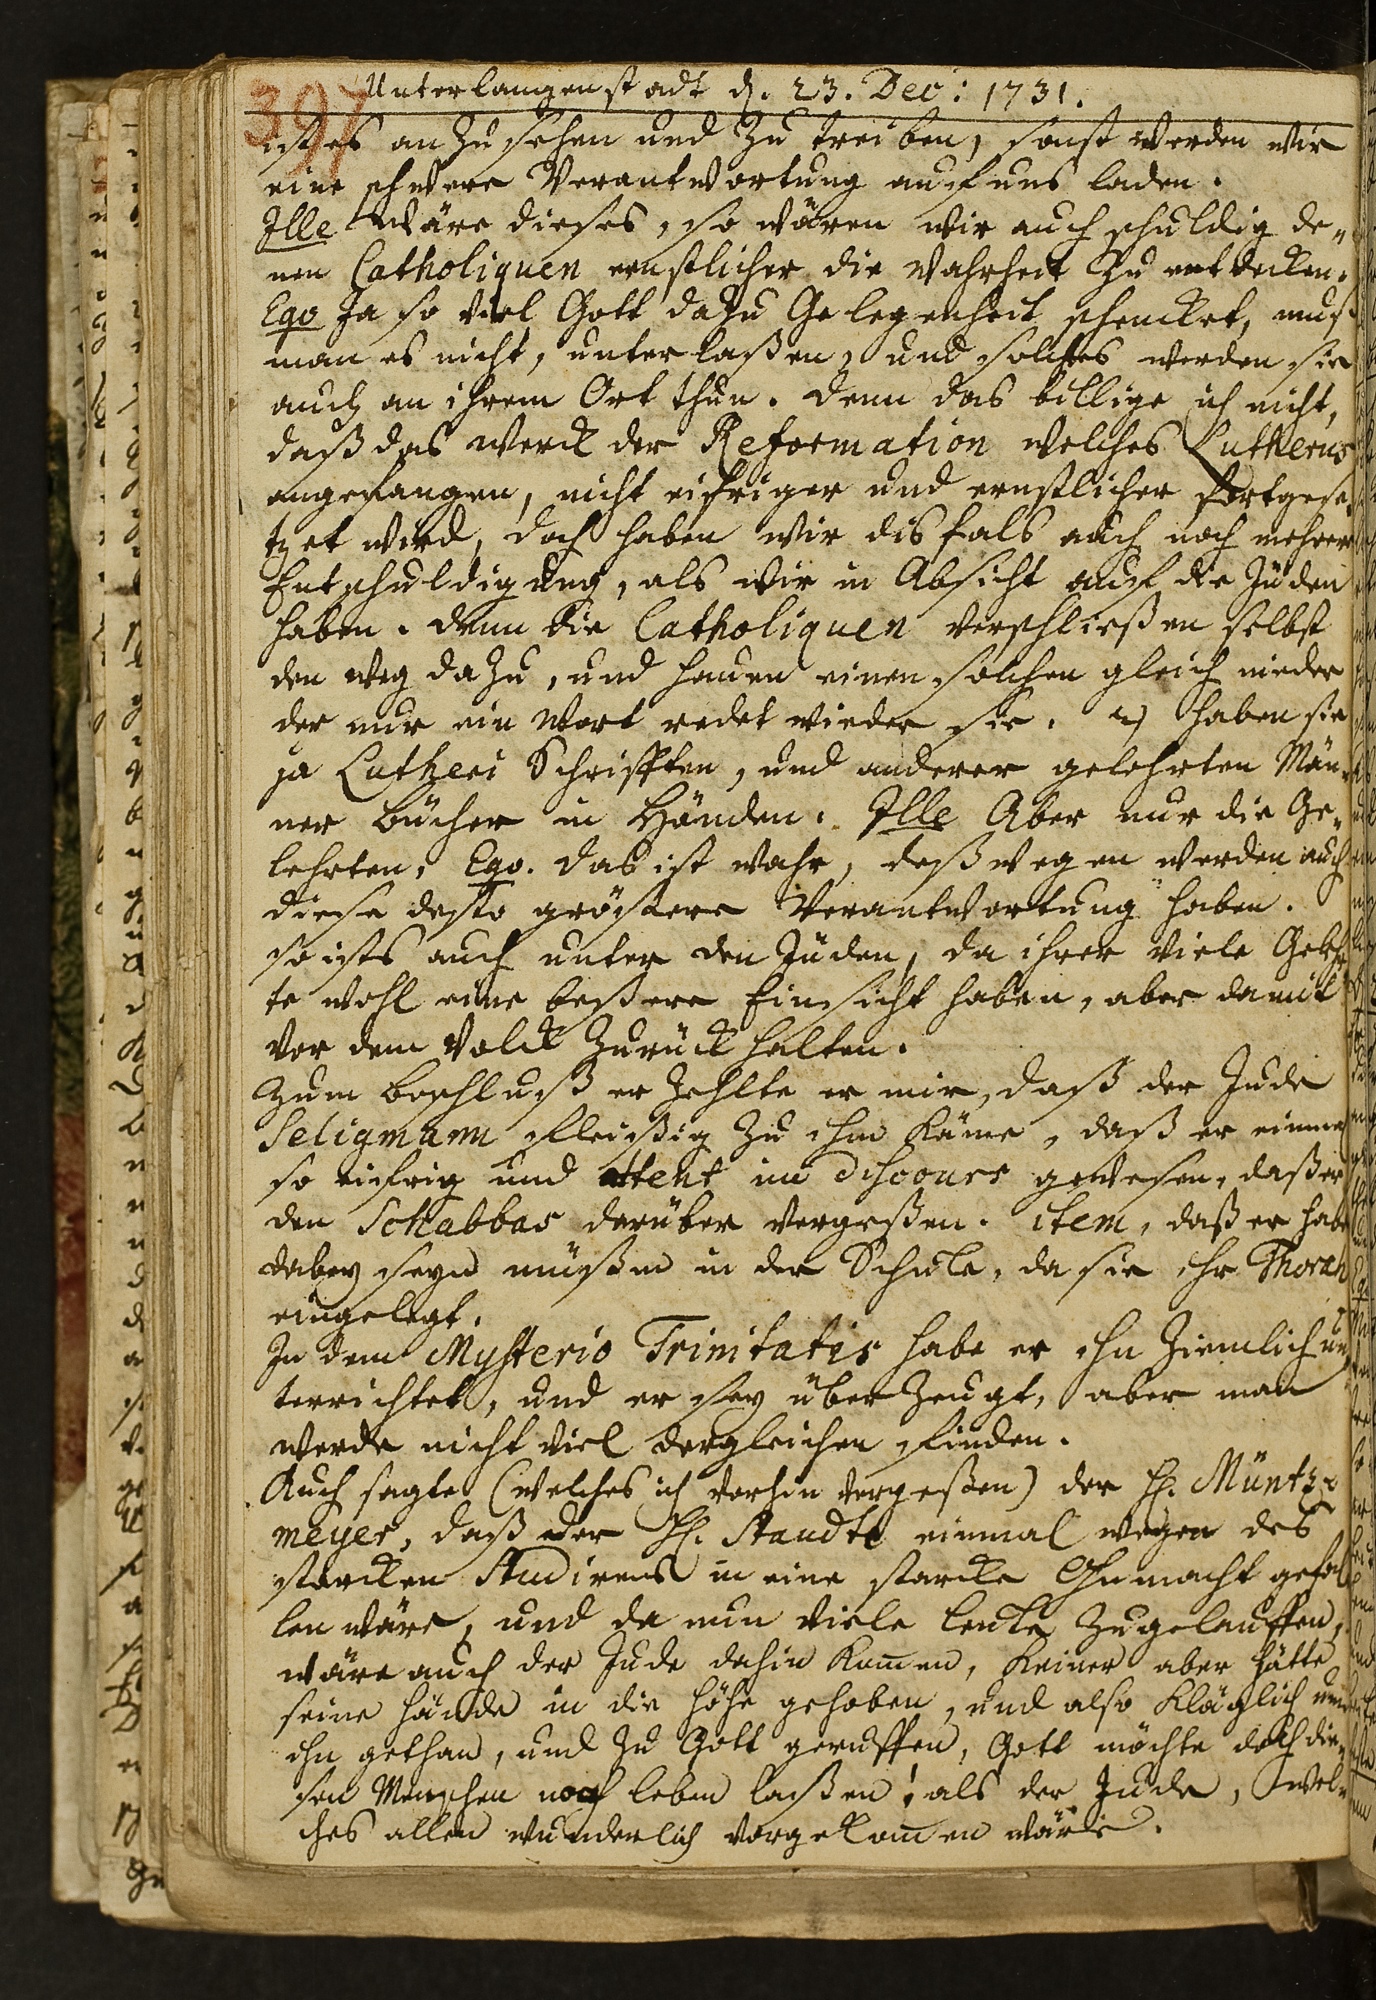 397
Unterlangenstadt d. 23. Dec: 1731.
ist es anzusehen und zu treiben, sonst werden wir
eine schwere Verantwortung auf uns laden.
Ille Wäre dieses, so wären wir auch schuldig de„
nen Catholiquen ernstlicher die Wahrheit zu entdecken.
Ego Ja so viel Gott dazu Gelegenheit schencket, muß
man es nicht, unterlaßen, und solches werden sie
auch an ihrem Ort thun. Denn das billige ich nicht,
daß das Werck der Reformation welches Lutherus
angefangen, nicht eifriger und ernstlicher fortgese„
tzet wird, doch haben wir disfals auch noch mehrere
Entschuldigung, als wir in Absicht auf die Juden
haben. Denn die Catholiquen verschließen selbst
den Weg dazu, und hauen einen solchen gleich nieder
der nur ein Wort redet wieder sie. 2) haben sie
ja Lutheri Schrifften, und anderer gelehrten Män„
ner Bücher in Händen. Ille Aber nur die Ge„
lehrten. Ego. Das ist wahr, deßwegen werden auch
diese desto größere Verantwortung haben.
so ists auch unter den Juden, da ihrer viele Gelehr
te wohl eine beßere Einsicht haben, aber damit
vor dem Volck zurück halten.
Zum Beschluß erzehlte er mir, daß der Jude
Seligmann fleißig zu ihm käme, daß er einmal
so eifrig und attent im discours gewesen, daß er
den Schabbas darüber vergeßen. item, daß er habe
dabey seyn müßen in der Schule, da sie ihr Thorah
eingelegt.
In dem Mysterio Trinitatis habe er ihn ziemlich un„
terrichtet, und er sey überzeugt, aber man
werde nicht viel dergleichen finden.
Auch sagte (welches ich vorhin vergeßen) der H. Müntz„
meyer, daß der H. Staudte einmal wegen des
starcken Studirens in eine starcke Ohnmacht gefal
len wäre, und da nun viele Leute zugelauffen,
wäre auch der Jude dahin kom̅en, keiner aber hätte
seine Hände in die Höhe gehoben, und also kläglich um
ihn gethan, und zu Gott geruffen, Gott möchte doch die„
sen Menschen noch leben laßen! als der Jude, wel„
ches allen wunderlich vorgekom̅en wäre.